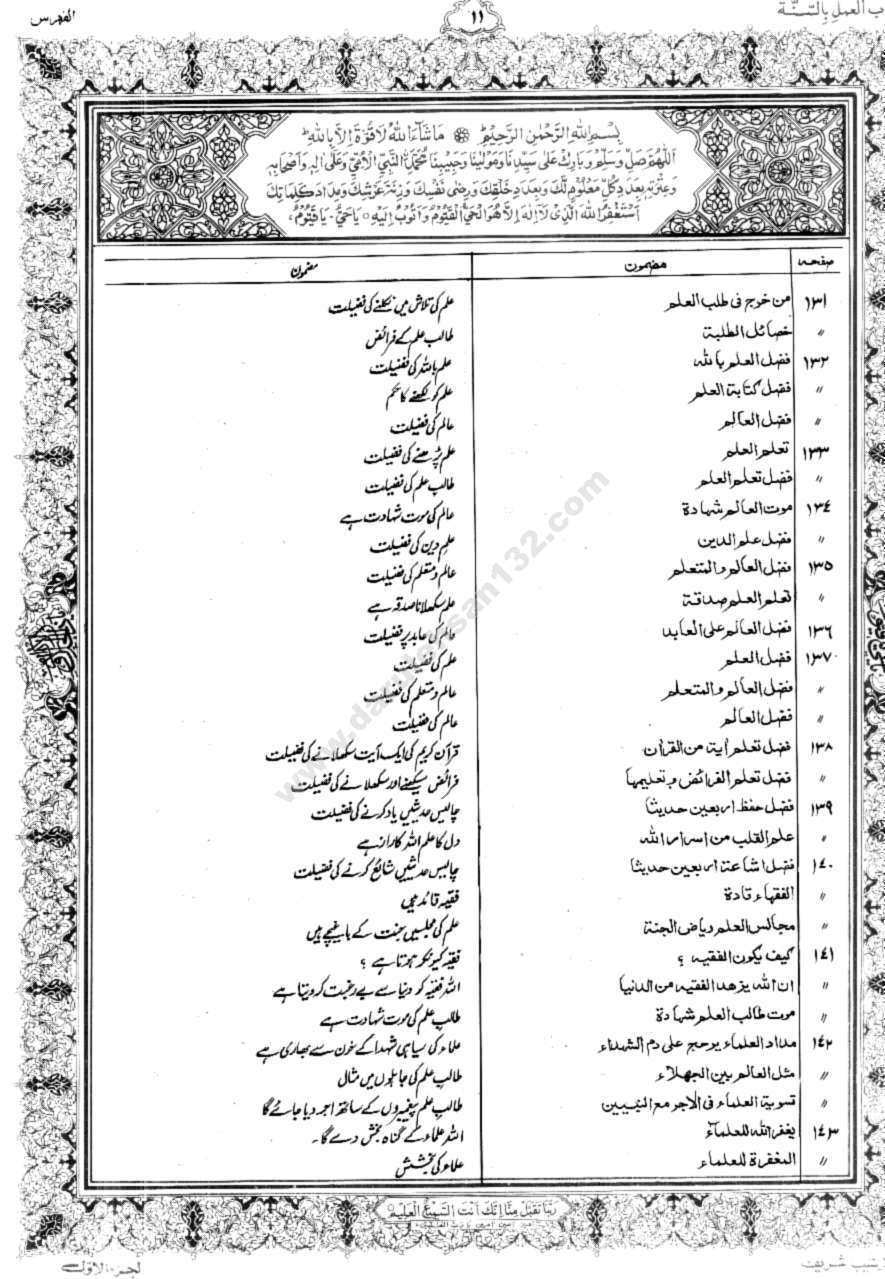 ب العمل بالسنة ١١ الفهرس
بسم الله الرحمن الرحيم ما شاء الله لا قوة الا بالله
اللهم صل وسلم وبارك على سيدنا ومولينا وحبيبنا محمد النبي الامي وعلى اله واصحابه
وعترته بعدد كل معلوم لك وبعدد خلقك ورضى نفسك وزنة عرشك ومداد كلماتك
استغفر الله الذي لا اله الا هو الحي القيوم واتوب اليه يا حي يا قيوم
صفحه مضمون مضمون
١٣١ من خرج فى طلب العلم علم کی تلاش میں نکلنے کی فضیلت
〃 خصائل الطلبة طالب علم کے فرائض
١٣٢ فضل العلم بالله علم باللہ کی فضیلت
〃 فضل كتابة العلم علم کو لکھنے کا حکم
〃 فضل العالم عالم کی فضیلت
١٣٣ تعلم العلم علم پڑھنے کی فضیلت
〃 فضل تعلم العلم طالب علم کی فضیلت
١٣٤ موت العالم شهادة عالم کی موت شہادت ہے
〃 فضل علم الدين علم دین کی فضیلت
١٣٥ فضل العالم والمتعلم عالم و متعلم کی فضیلت
〃 تعلم العلم صدقة علم سکھلانا صدقہ ہے
١٣٦ فضل العالم على العابد عالم کی عابد پر فضیلت
١٣٧ فضل العلم علم کی فضیلت
〃 فضل العالم والمتعلم عالم و متعلم کی فضیلت
〃 فضل العالم عالم کی فضیلت
١٣٨ فضل تعلم آية من القرآن قرآن کریم کی ایک آیت سکھلانے کی فضیلت
〃 فضل تعلم الفرائض وتعليمها فرائض سیکھنے اور سکھلانے کی فضیلت
١٣٩ فضل حفظ اربعين حديثا چالیس حدیثیں یاد کرنے کی فضیلت
〃 علم القلب من اسرار الله دل کا علم اللہ کا راز ہے
١٤٠ فضل اشاعة اربعين حديثا چالیس حدیثیں شائع کرنے کی فضیلت
〃 الفقهاء قادة فقیہ قائد ہیں
〃 مجالس العلم رياض الجنة علم کی مجلسیں جنت کے باغیچے ہیں
١٤١ كيف يكون الفقيه ؟ فقیہ کیونکر ہوتا ہے ؟
〃 ان الله يزهد الفقيه من الدنيا اللہ فقیہ کو دنیا سے بے رغبت کر دیتا ہے
〃 موت طالب العلم شهادة طالب علم کی موت شہادت ہے
١٤٢ مداد العلماء يرجح على دم الشهداء علماء کی سیاہی شہدا کے خون سے بھاری ہے
〃 مثل العالم بين الجهلاء طالب علم کی جاہلوں میں مثال
〃 تسوية العلماء فى الاجر مع النبيين طالب علم پیغمبروں کے ساتھ اجر دیا جائے گا
١٤٣ يغفر الله للعلماء اللہ علماء کے گناہ بخش دے گا۔
〃 المغفرة للعلماء علماء کی بخشش
ربنا تقبل منا انك انت السميع العليم
لجزء الاول
www.darulehsan132.com